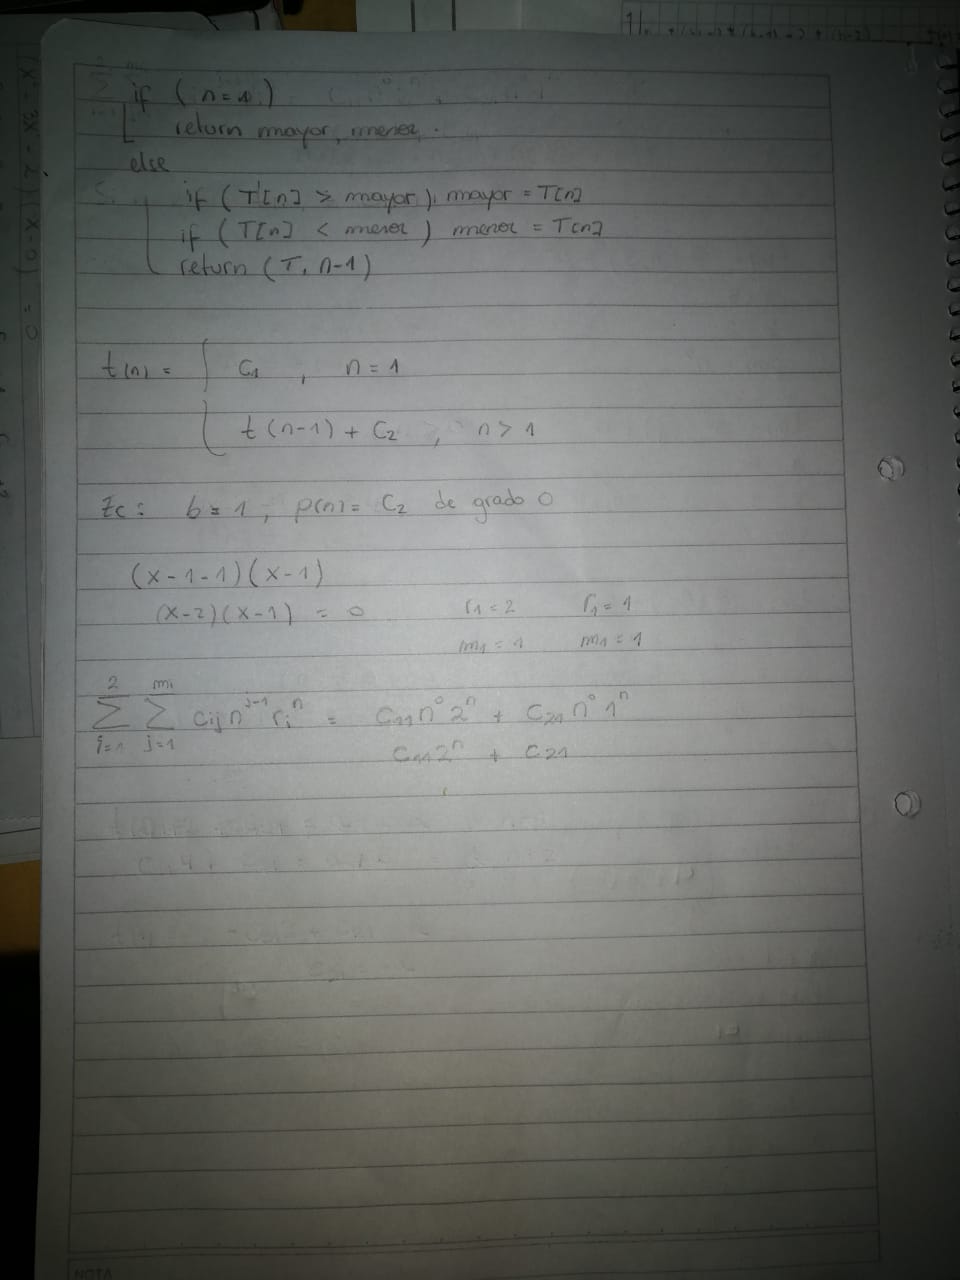 if (n=1)
return mayor, menor.
else
if (T[n] > mayor), mayor = T[n]
if (T[n] < menor) menor = T[n]
return (T, n-1)
t(n) = { C₁ , n = 1
t(n-1) + C₂ , n > 1
Ec: b = 1, p(n) = C₂ de grado 0
(x-1-1)(x-1)
(x-2)(x-1) = 0 r₁ = 2 r₁ = 1
m₁ = 1 m₁ = 1
2 mi
Σ Σ cij n^j-1 ri^n = C₁₁n⁰2ⁿ + C₂₁n⁰1ⁿ
i=1 j=1 C₁₁2ⁿ + C₂₁
NOTA